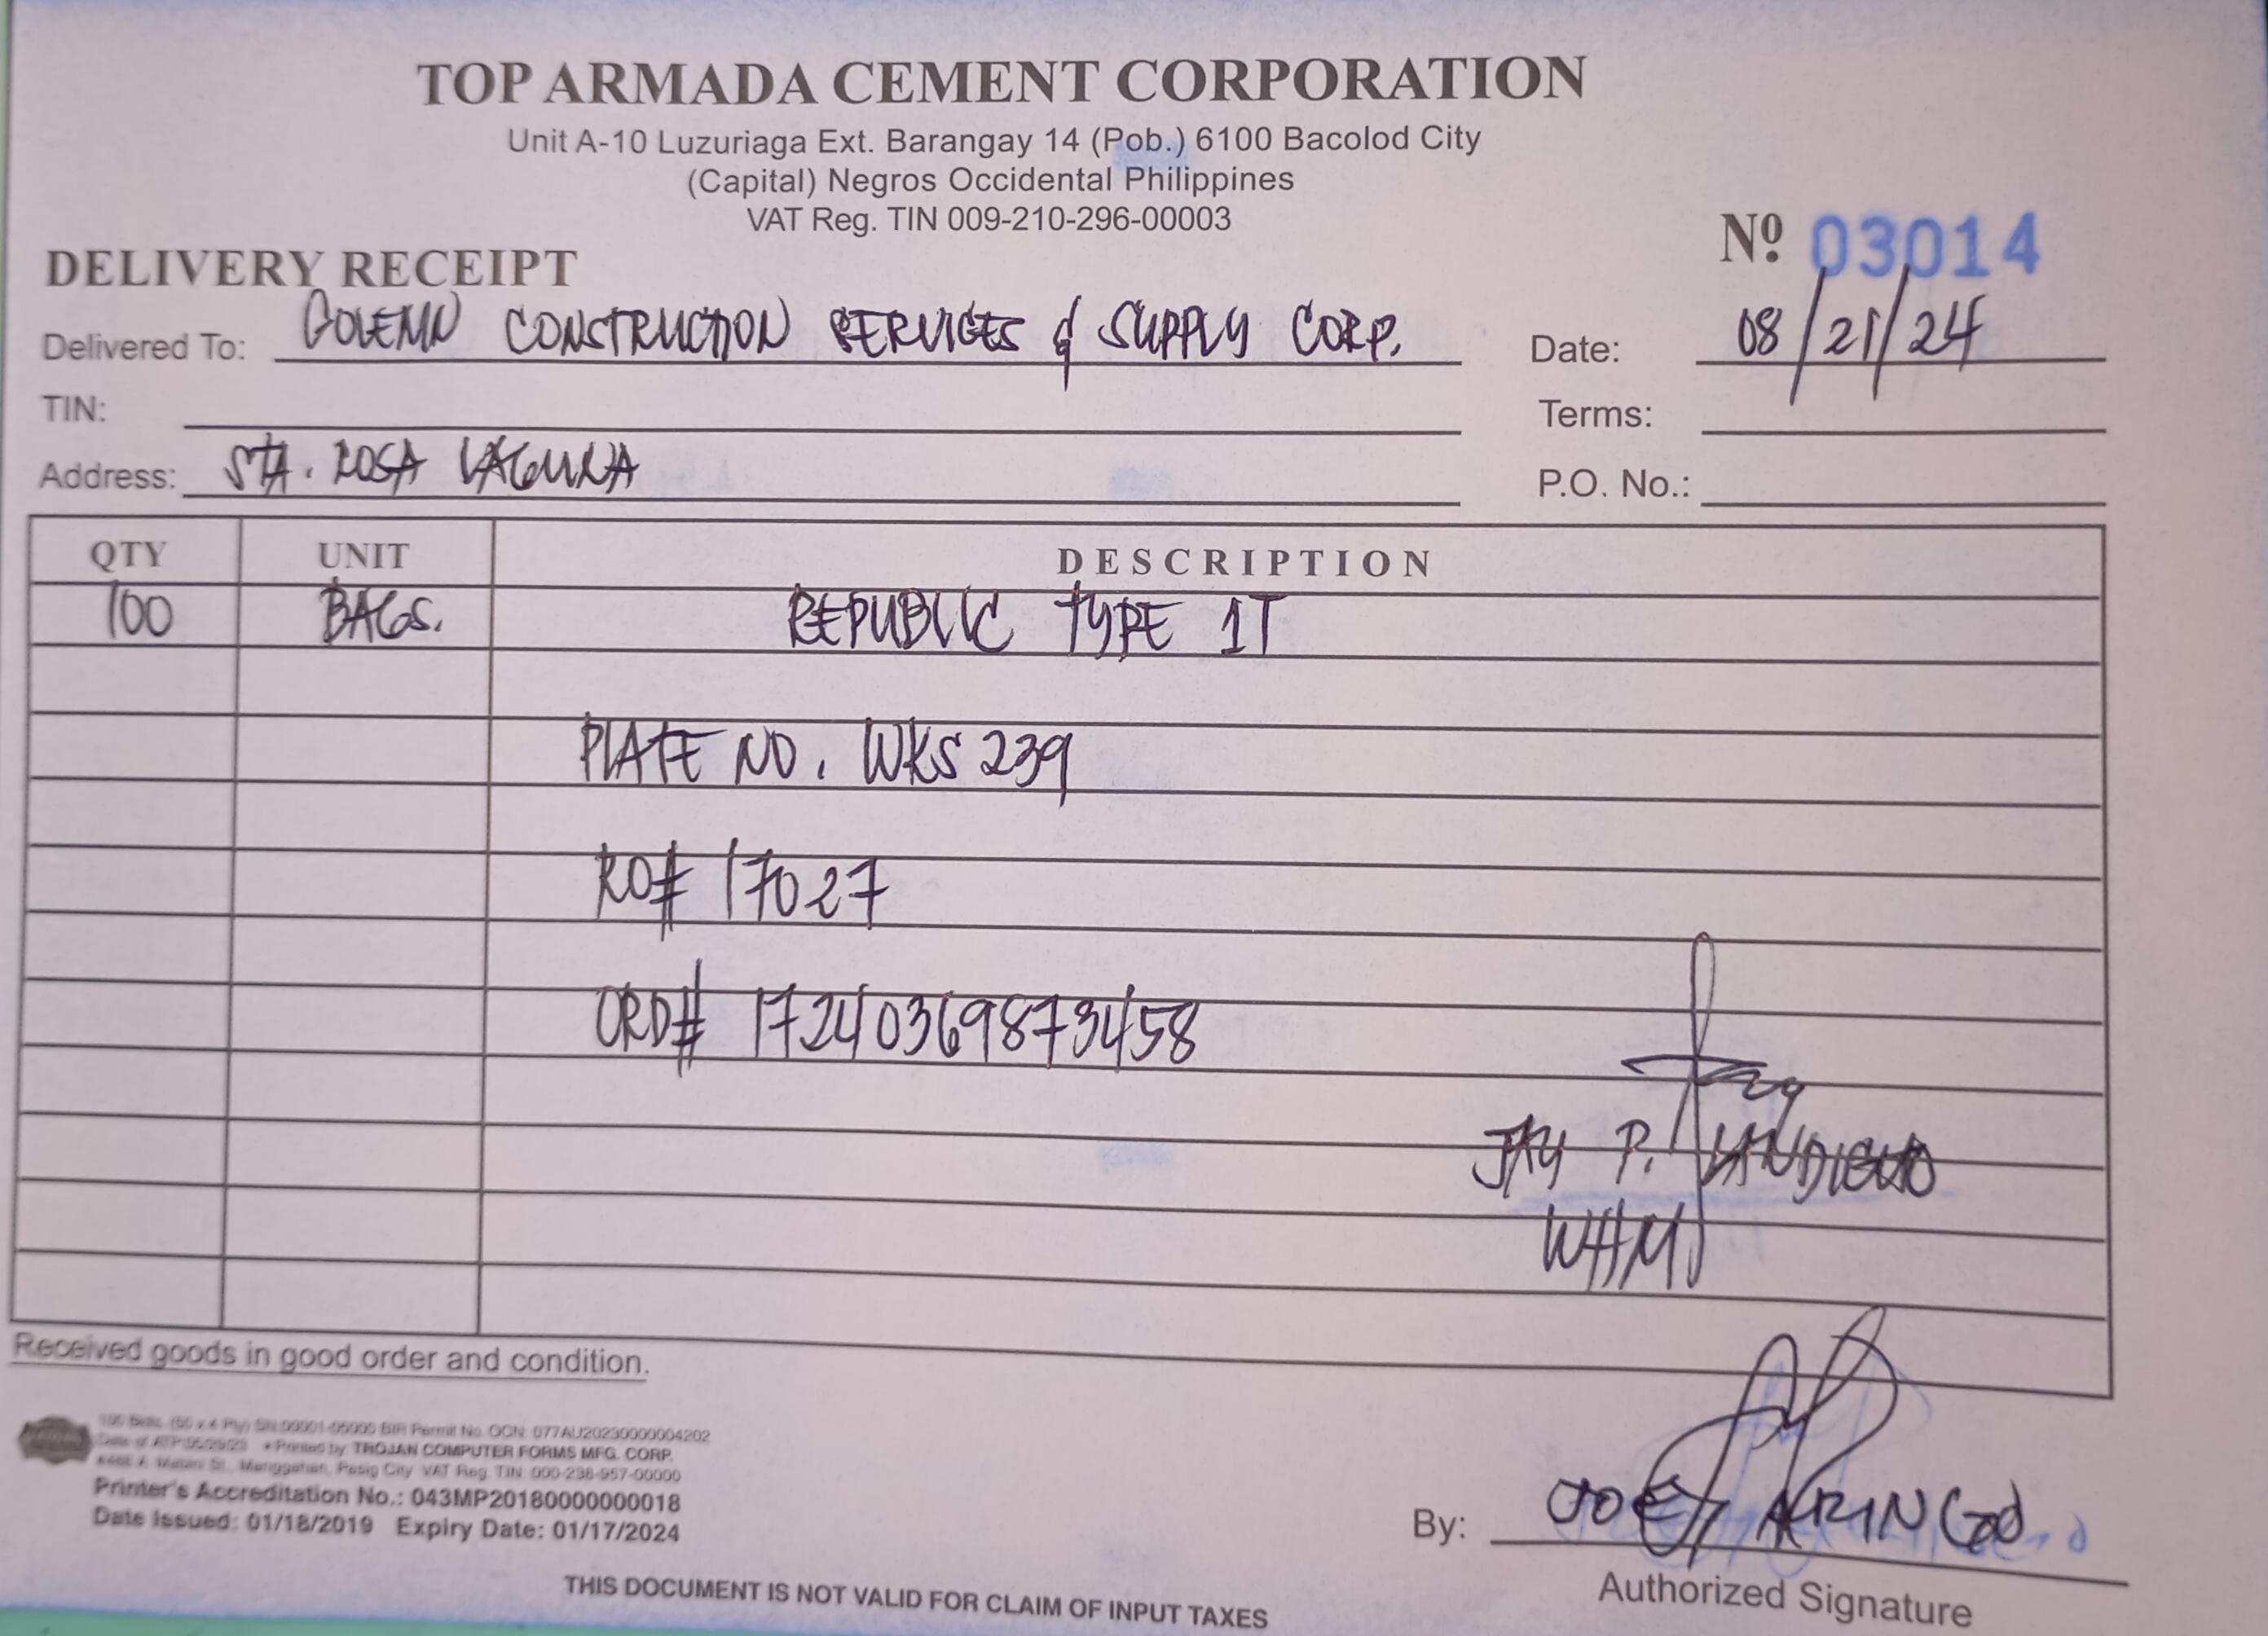 TOP ARMADA CEMENT CORPORATION
Unit A-10 Luzuriaga Ext. Barangay 14 (Pob.) 6100 Bacolod City
(Capital) Negros Occidental Philippines
VAT Reg. TIN 009-210-296-00003
Nº 03014
DELIVERY RECEIPT
Delivered To: GOLEMN CONSTRUCTION SERVICES & SUPPLY CORP. Date: 08/21/24
TIN: Terms:
Address: STA. ROSA LAGUNA P.O. No.:
QTY UNIT DESCRIPTION
100 BAGS. REPUBLIC TYPE 1T
PLATE NO. WKS 239
RO# 17027
ORD# 1724036987 3458
JAY P.
WHM
Received goods in good order and condition.
100 Bklts. (50 x 4 Ply) SN:00001-05000 BIR Permit No. OCN: 077AU20230000004202
Date of ATP: • Printed by: TROJAN COMPUTER FORMS MFG. CORP.
Manggahan, Pasig City VAT Reg. TIN: 000-236-957-00000
Printer's Accreditation No.: 043MP20180000000018
Date Issued: 01/18/2019 Expiry Date: 01/17/2024
By: JOEY ARINGOd
Authorized Signature
THIS DOCUMENT IS NOT VALID FOR CLAIM OF INPUT TAXES